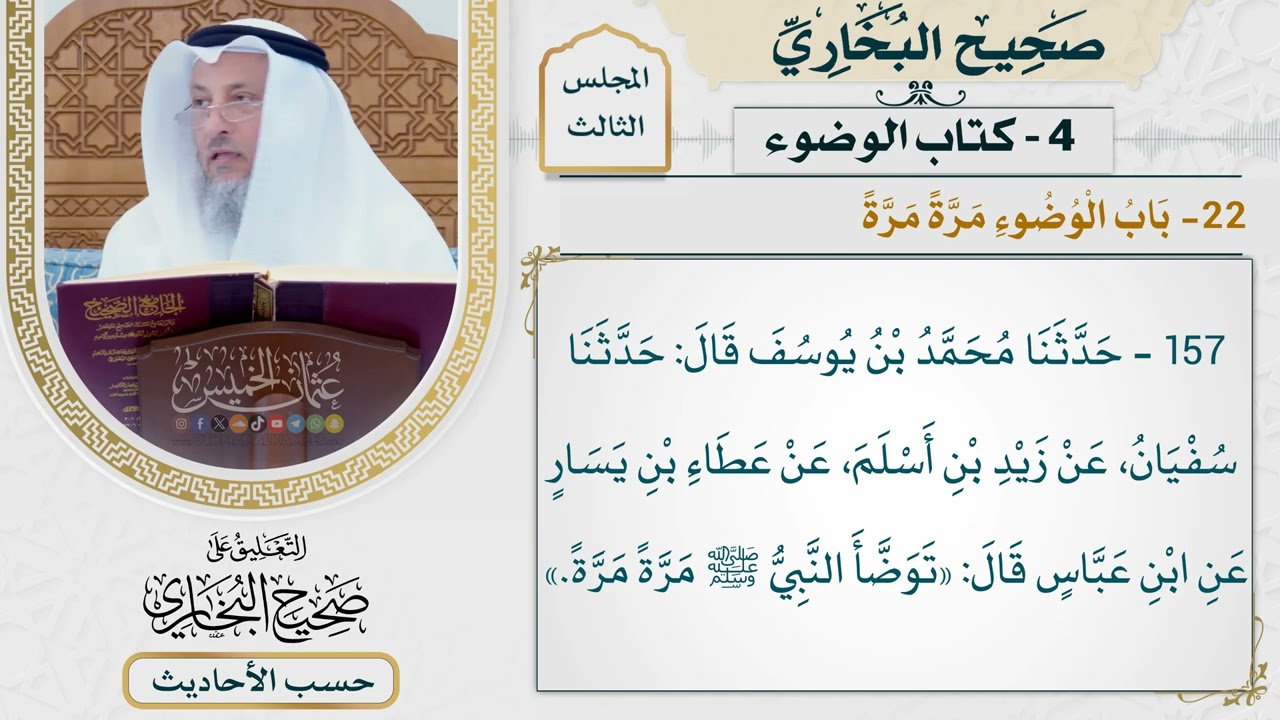 صَحِيح البُخَارِيِّ
المجلس
الثالث
4 - كتاب الوضوء
22- بَابُ الْوُضُوءِ مَرَّةً مَرَّةً
157 - حَدَّثَنَا مُحَمَّدُ بْنُ يُوسُفَ قَالَ: حَدَّثَنَا
سُفْيَانُ، عَنْ زَيْدِ بْنِ أَسْلَمَ، عَنْ عَطَاءِ بْنِ يَسَارٍ
عَنِ ابْنِ عَبَّاسٍ قَالَ: «تَوَضَّأَ النَّبِيُّ ﷺ مَرَّةً مَرَّةً.»
الجامع الصحيح
عثمان الخميس
التَّعْلِيقُ عَلَى
صَحِيحِ البُخَارِي
حسب الأحاديث